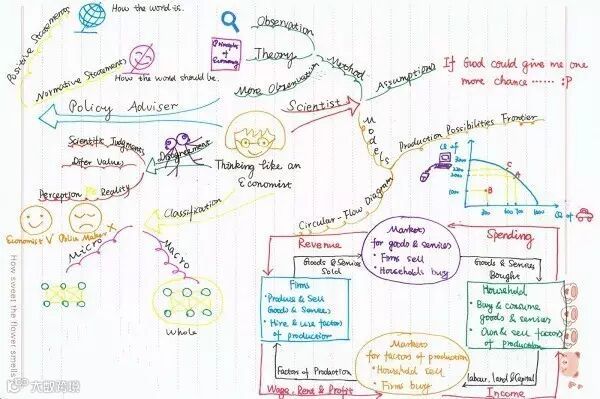 Positive Statements
How the world is.
Normative Statements
How the world should be.
Policy Adviser
Observation
Theory
More Observation
Principles
of
Economy
Method
Scientist
Assumptions
If God could give me one
more chance ...... :P
Models
Production Possibilities Frontier
Circular-Flow Diagram
Thinking like an
Economist
Disagreement
Scientific Judgments
Differ Values
Perception
Reality
Economist V
X
Classification
Micro
Macro
Whole
How sweet the flower smells
3000
1000
A
B
C
Revenue
Markets
for goods & services
• Firms sell
• Households buy
Spending
Goods & Services
Sold
Goods & Services
Bought
Firms
• Produce & Sell
Goods & Services
• Hire & use factors
of production
Household
• Buy & consume
goods & services
• Own & sell factors
of production
Markets
for factors of production
• Household sell
• Firms buy
Factors of Production
Labour, land & Capital
Wage, Rent & Profit
Income